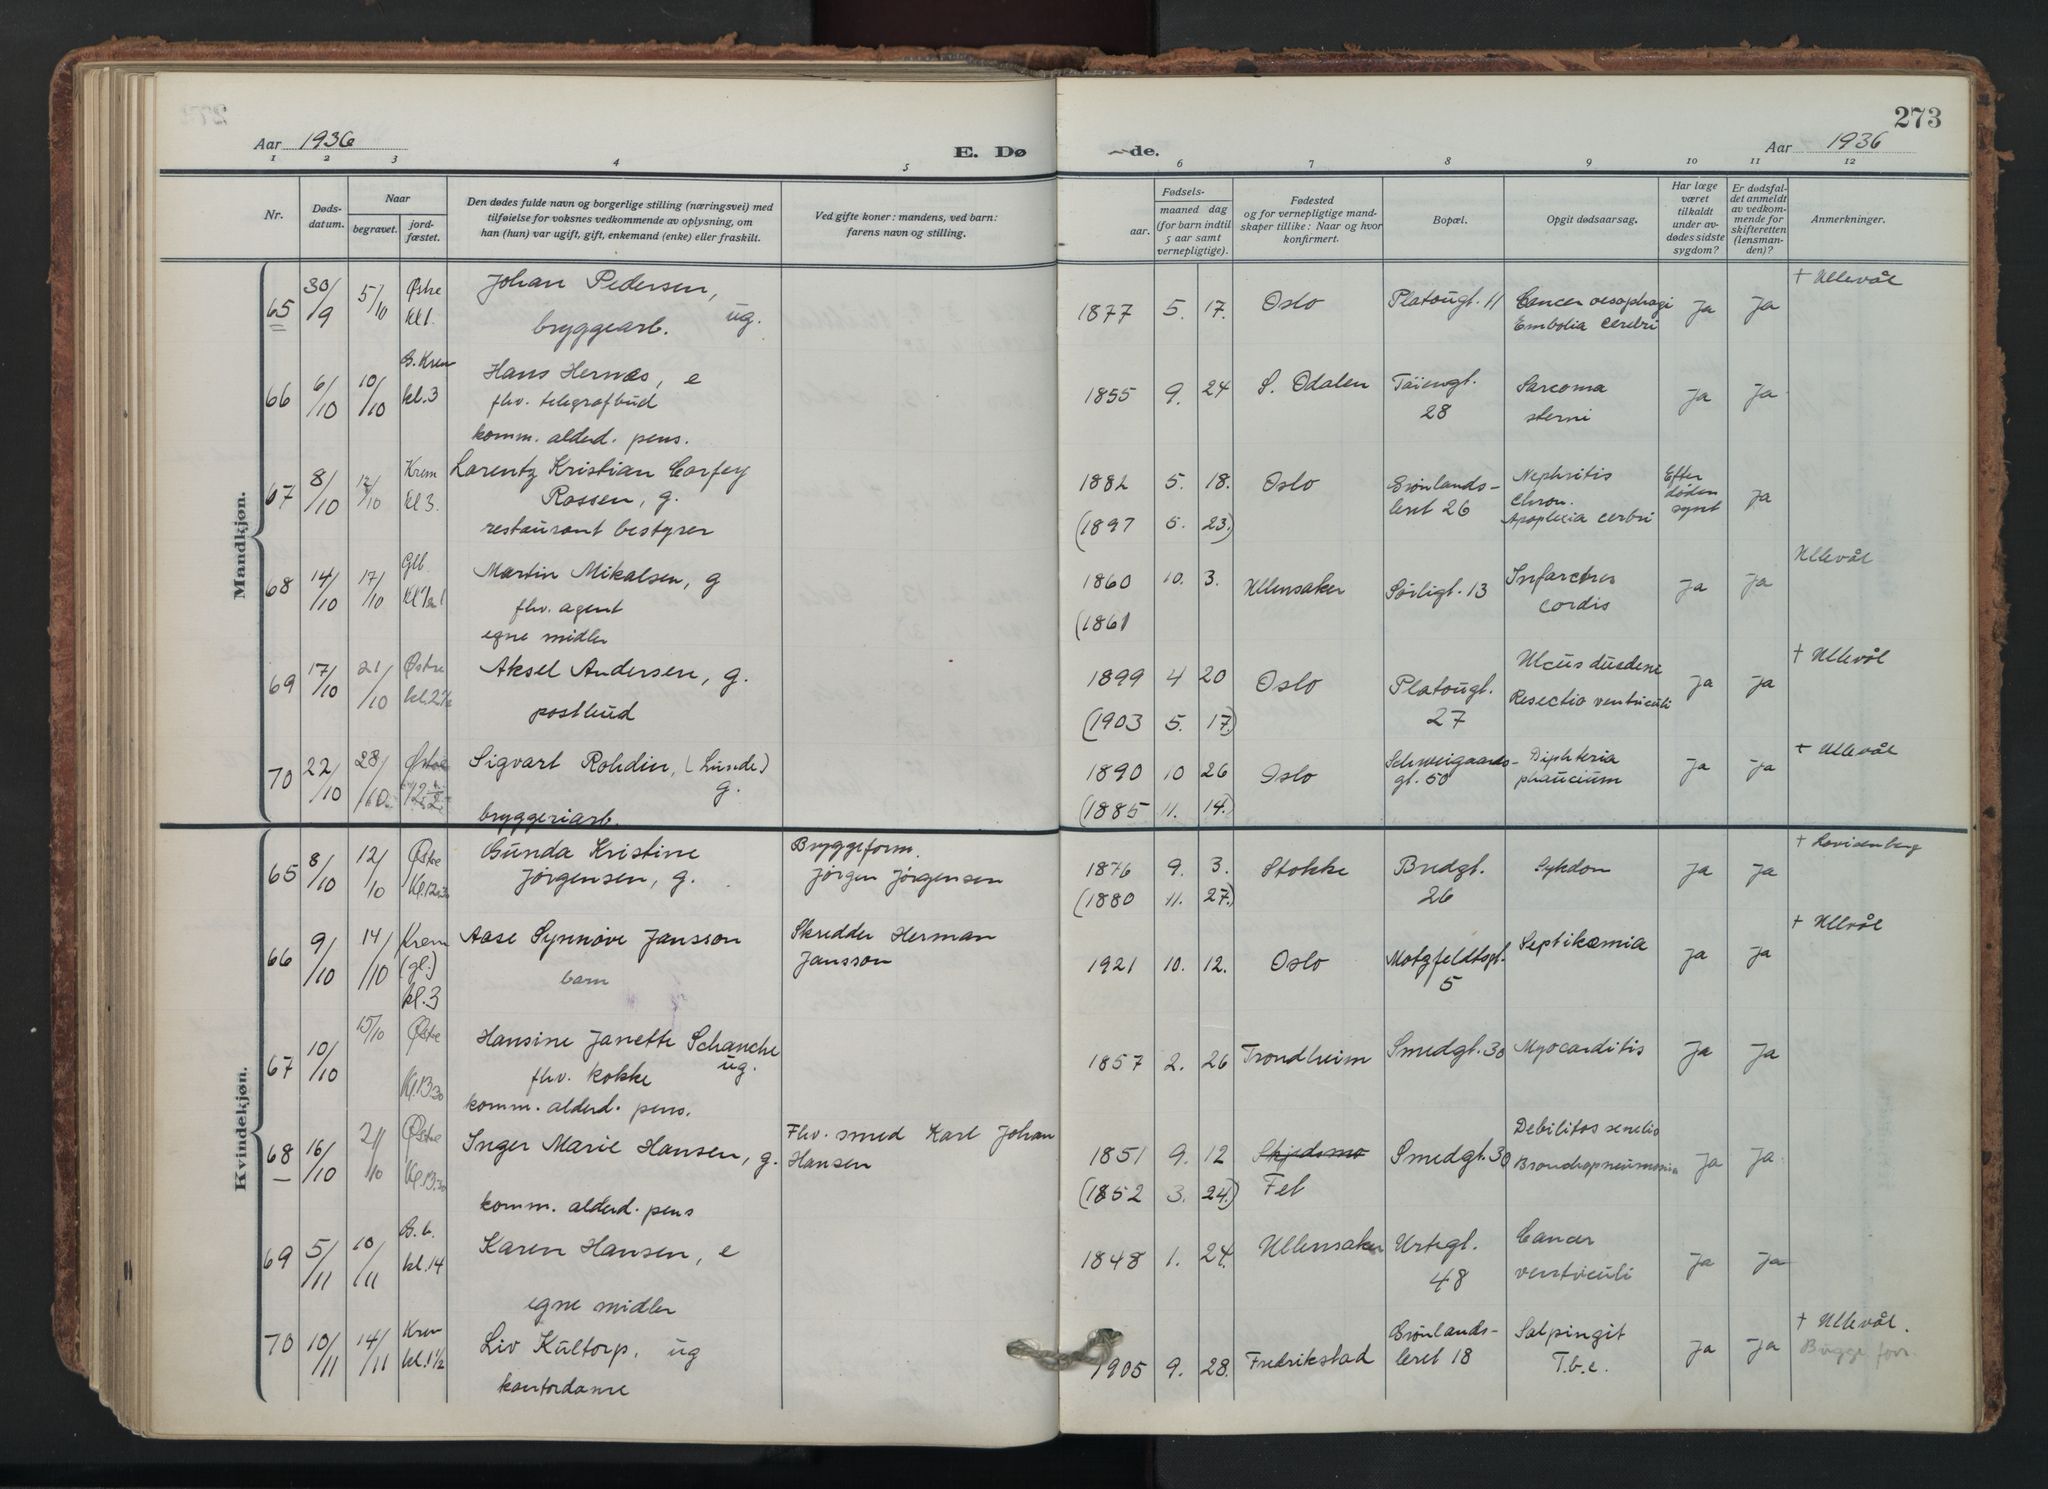 273
Aar 1936
E. Dø
de.
Aar 1936
1 2 3 4 5 6 7 8 9 10 11 12
Nr.
Døds-
datum.
Naar
begravet.
jord-
fæstet.
Den dødes fulde navn og borgerlige stilling (næringsvei) med
tilføielse for voksnes vedkommende av oplysning, om
han (hun) var ugift, gift, enkemand (enke) eller fraskilt.
Ved gifte koner: mandens, ved barn:
farens navn og stilling.
Fødsels-
aar.
maaned dag
(for barn indtil
5 aar samt
vernepligtige).
Fødested
og for vernepligtige mand-
skaper tillike: Naar og hvor
konfirmert.
Bopæl.
Opgit dødsaarsag.
Har læge
været
tilkaldt
under av-
dødes sidste
sygdom?
Er dødsfal-
det anmeldt
av vedkom-
mende for
skifteretten
(lensman-
den)?
Anmerkninger.
Mandkjøn.
65 30/9 5/10 Østre kl 1. Johan Pedersen, ug.
bryggearb.
1877 5. 17. Oslo Platougt. 11 Cancer oesophagi
Embolia cerebri
Ja Ja + Ullevål
66 6/10 10/10 G. Krem kl. 3 Hans Hernæs, e
fhv. telegrafbud
komm. alderd. pens.
1855 9. 24 S. Odalen Tøiengt.
28
Sarcoma
sterni
Ja Ja
67 8/10 12/10 Krem kl 3. Lorentz Kristian Corfey
Rossen, g.
restaurant bestyrer
1882 5. 18. Oslo Grønlands-
leret 26
Nephritis
chron.
Apoplexia cerbri
Efter
døden
synt
Ja
(1897 5. 23.)
68 14/10 17/10 Glb. Martin Mikalsen, g
fhv. agent
egne midler
1860 10. 3. Ullensaker Sørligt. 13 Infarctus
cordis
Ja Ja Ullevål
(1861
69 17/10 21/10 Østre kl. 2 1/2 Aksel Andersen, g.
postbud
1899 4 20 Oslo Platougt.
27
Ulcus duodeni
Resectio ventriculi
Ja Ja + Ullevål
(1903 5. 17.)
70 22/10 28/10 Østre Sigvart Rohdin, (Lunde)
g.
bryggeriarb.
1890 10 26 Oslo Schweigaards-
gt. 50
Diphteria
phaucium
Ja Ja + Ullevål
(1885 11. 14.)
Kvindekjøn.
65 8/10 12/10 Østre Kl. 12.30 Gunda Kristine
Jørgensen, g.
Bryggeform.
Jørgen Jørgensen
1876 9. 3. Stokke Bredgt.
26
Sykdom
Ja Ja + Lovisenberg
(1880 11. 27.)
66 9/10 14/10 Krem (gl.) kl. 3 Aase Synnøve Jansson
barn
Skredder Herman
Jansson
1921 10. 12. Oslo Motzfeldtsgt.
5
Septikæmia
Ja Ja + Ullevål
67 10/10 15/10 Østre Kl. 13.30 Hansine Janette Schanche
ug.
fhv. kokke
komm. alderd. pens.
1857 2. 26 Trondheim Smedgt. 30 Myocarditis
Ja Ja
68 16/10 21/10 Østre Kl. 13.30 Inger Marie Hansen, g.
komm. alderd. pens
Fhv. smed Karl Johan
Hansen
1851 9. 12 Skjedsmo
Fet
Smedgt. 30 Debilitas senelis
Bronchopneumonia
Ja Ja
(1852 3. 24.)
69 5/11 10/11 kl. 14 Karen Hansen, e
egne midler
1848 1. 24. Ullensaker Urtegt.
48
Cancer
ventriculi
Ja Ja
70 10/11 14/11 Krem kl. 1 1/2 Liv Kultorp, ug
kontordame
1905 9. 28. Fredrikstad Grønlands-
leret 18
Salpingit
T.b.c.
Ja Ja + Ullevål.
Bugge forr.